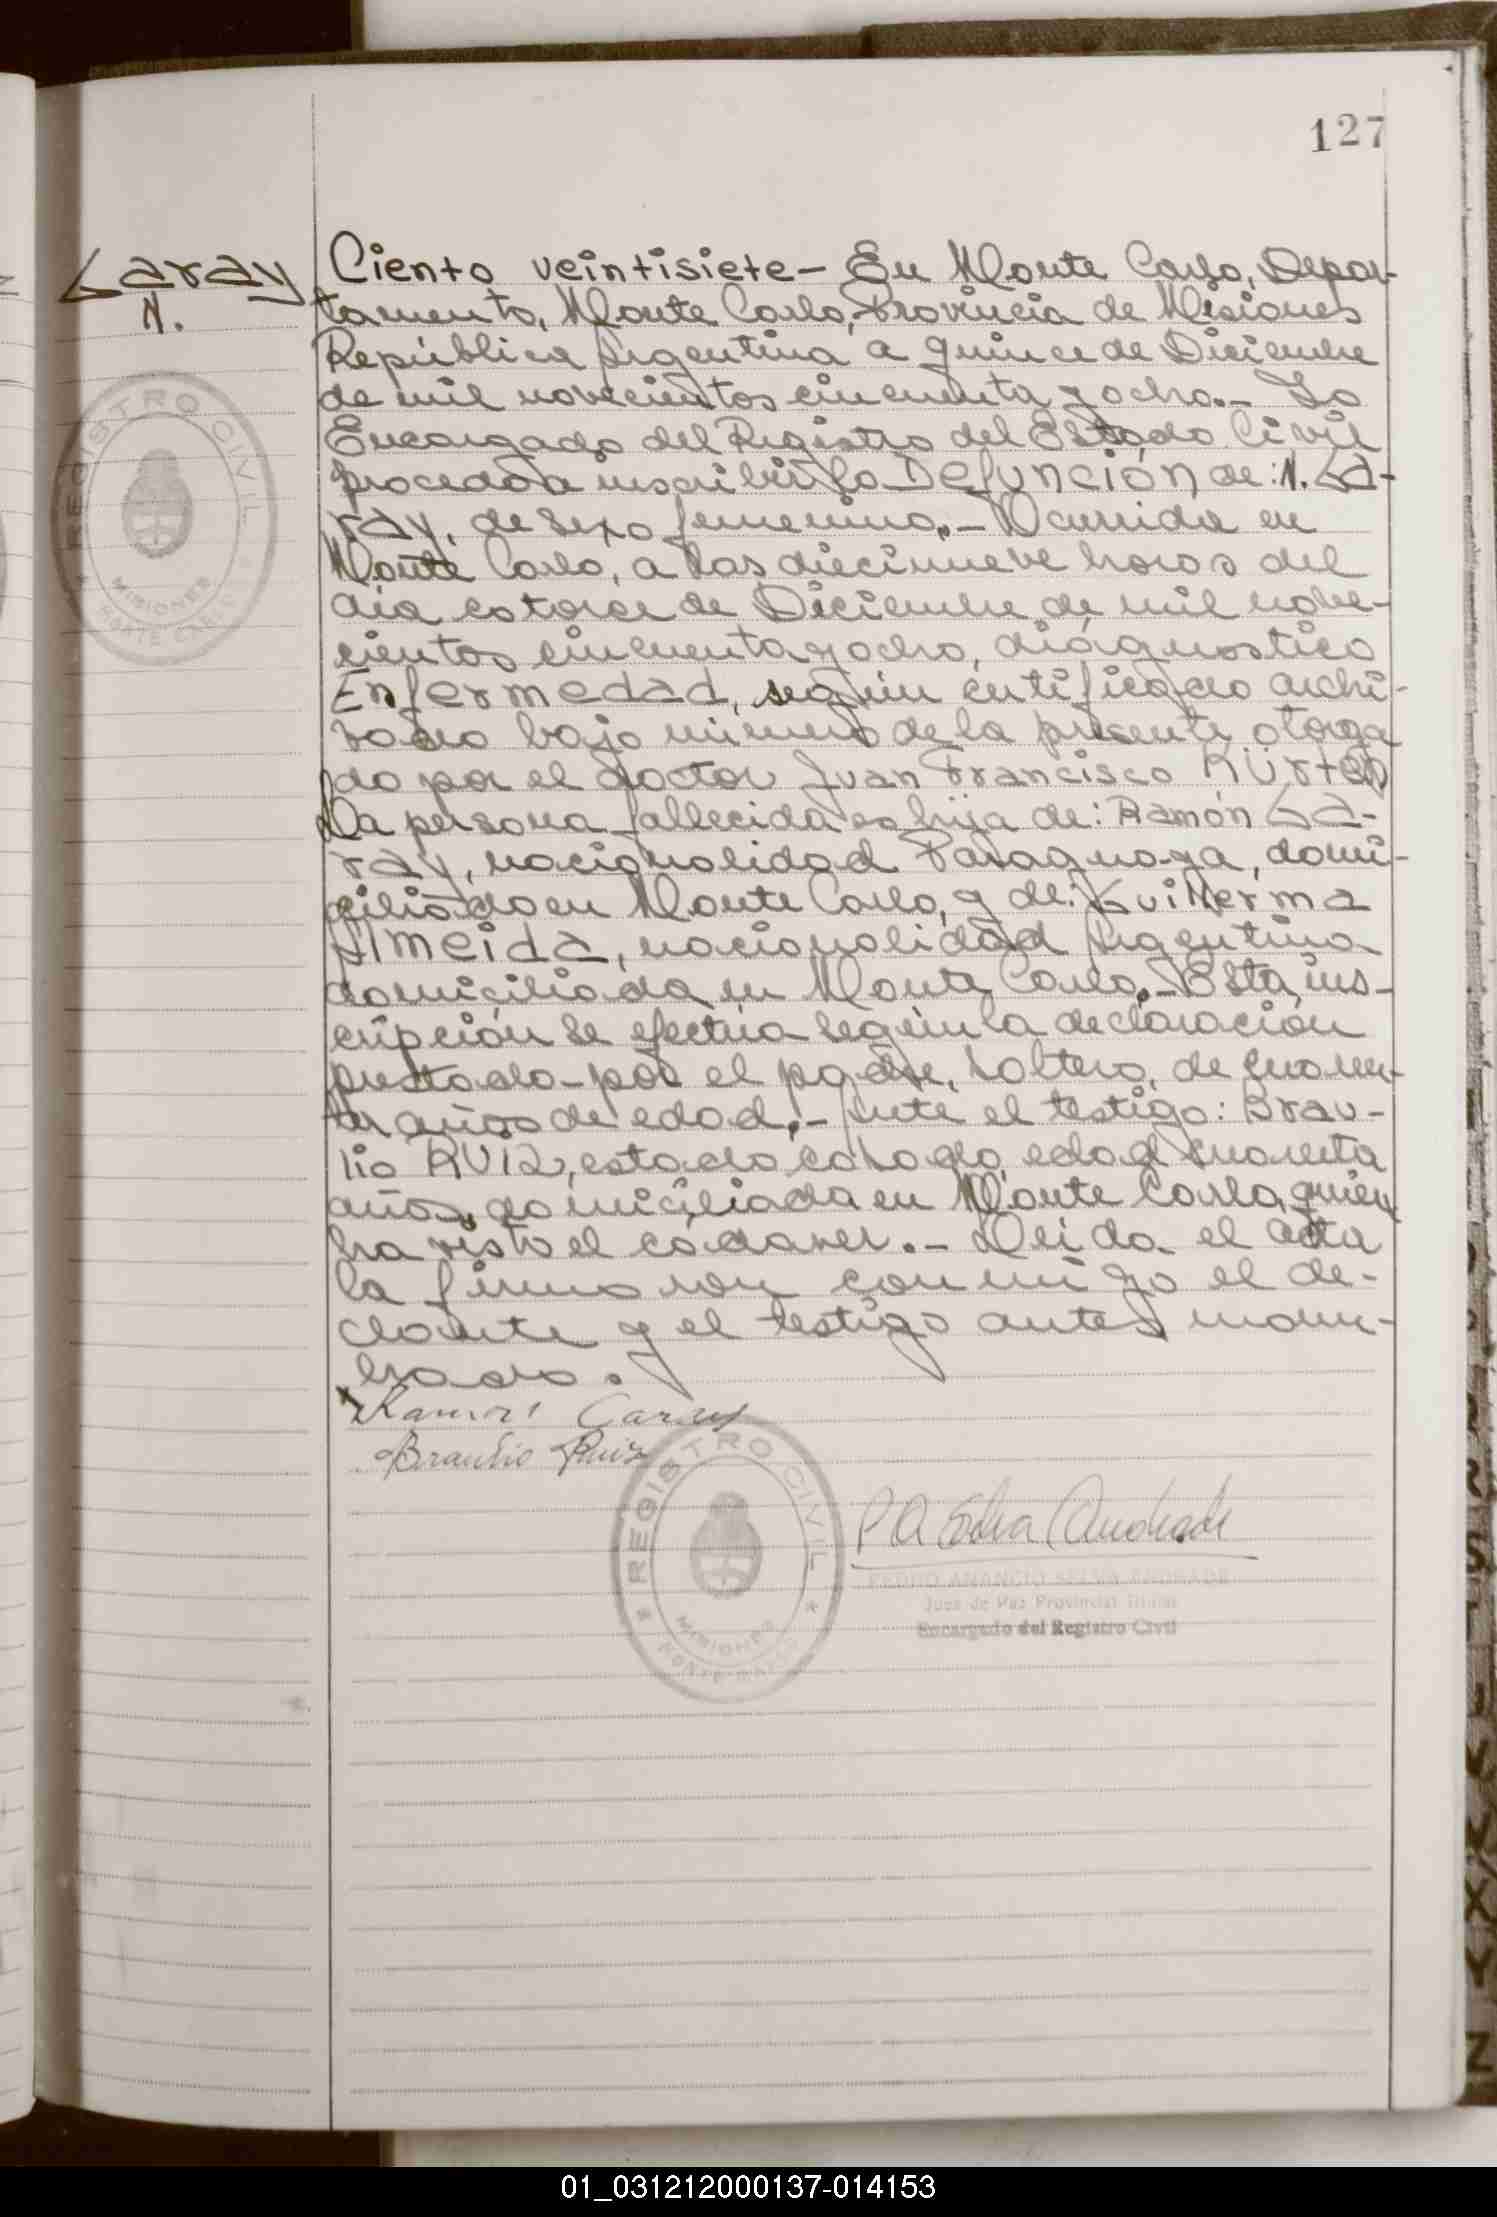 127
Garay
N.
Ciento veintisiete - En Monte Carlo, Depar-
tamento, Monte Carlo, Provincia de Misiones
República Argentina a quince de Diciembre
de mil novecientos cincuenta y ocho.- Yo
Encargado del Registro del Estado Civil
procedo a inscribir la Defunción de: N. Ga-
ray, de sexo femenino.- Ocurrida en
Monte Carlo, a las diecinueve horas del
día catorce de Diciembre de mil nove-
cientos cincuenta y ocho, diágnostico
Enfermedad, según certificado archi-
vado bajo número de la presente otorga
do por el doctor Juan Francisco Kürten
La persona fallecida es hija de: Ramón Ga-
ray, nacionalidad Paraguaya, domi-
ciliado en Monte Carlo, y de: Guillerma
Almeida, nacionalidad Argentina
domiciliada en Monte Carlo.- Esta ins-
cripción se efectúa según la declaración
prestado - por el padre, soltero, de cuaren-
ta años de edad.- Ante el testigo: Brau-
lio RUIZ, estado casado, edad cuarenta
años, domiciliada en Monte Carlo, quien
ha visto el cadaver.- Leida el acta
la firmaron conmigo el de-
clarante y el testigo antes nom-
brado.
Ramon Garay
Braulio Ruiz
P A Selva Andrade
PEDRO ANANCIO SELVA ANDRADE
Juez de Paz Provincial Titular
Encargado del Registro Civil
REGISTRO CIVIL
MISIONES
MONTE CARLO
REGISTRO CIVIL
MISIONES
MONTE CARLO
S
T
V
X
Y
Z
01_031212000137-014153